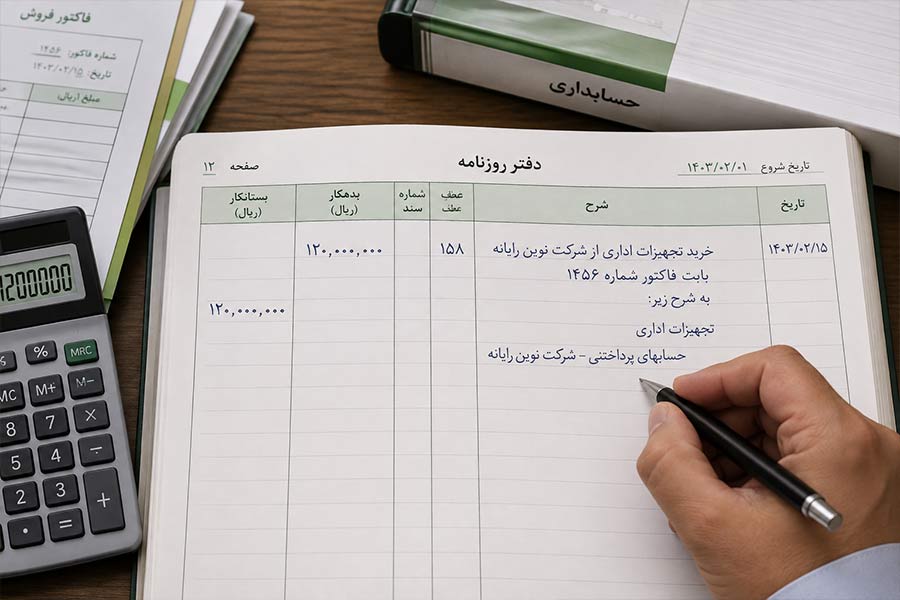 فاکتور فروش
شماره فاکتور: ۱۴۵۶
تاریخ: ۱۴۰۳/۰۲/۱۵
مبلغ (ریال)
حسابداری
تاریخ شروع ۱۴۰۳/۰۲/۰۱
دفتر روزنامه
صفحه ۱۲
تاریخ
شرح
عطف
عطف
شماره سند
بدهکار (ریال)
بستانکار (ریال)
۱۴۰۳/۰۲/۱۵ خرید تجهیزات اداری از شرکت نوین رایانه ۱۵۸ ۱۲۰,۰۰۰,۰۰۰
بابت فاکتور شماره ۱۴۵۶
به شرح زیر: ۱۲۰,۰۰۰,۰۰۰
تجهیزات اداری
حسابهای پرداختنی – شرکت نوین رایانه
1200000
% MRC
MC M+ M−
8 7 ×
5 4 −
2 3 +
. =